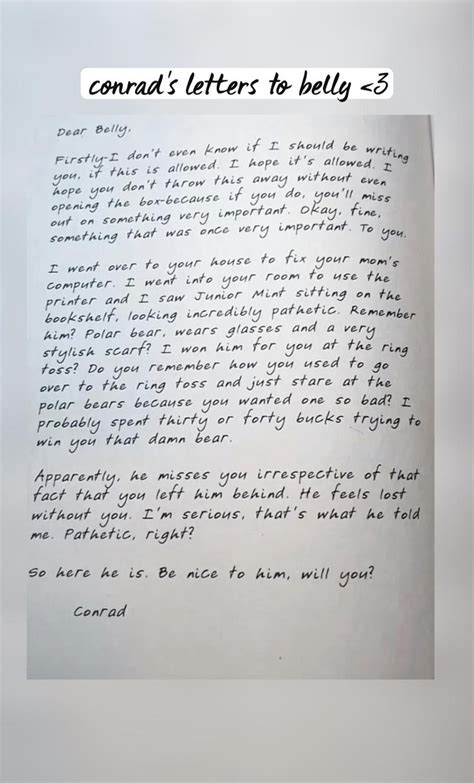 conrad's letters to belly <3
Dear Belly,
Firstly-I don't even know if I should be writing
you, if this is allowed. I hope it's allowed. I
hope you don't throw this away without even
opening the box-because if you do, you'll miss
out on something very important. Okay, fine,
something that was once very important. To you.
I went over to your house to fix your mom's
computer. I went into your room to use the
printer and I saw Junior Mint sitting on the
bookshelf, looking incredibly pathetic. Remember
him? Polar bear, wears glasses and a very
stylish scarf? I won him for you at the ring
toss? Do you remember how you used to go
over to the ring toss and just stare at the
polar bears because you wanted one so bad? I
probably spent thirty or forty bucks trying to
win you that damn bear.
Apparently, he misses you irrespective of that
fact that you left him behind. He feels lost
without you. I'm serious, that's what he told
me. Pathetic, right?
So here he is. Be nice to him, will you?
Conrad